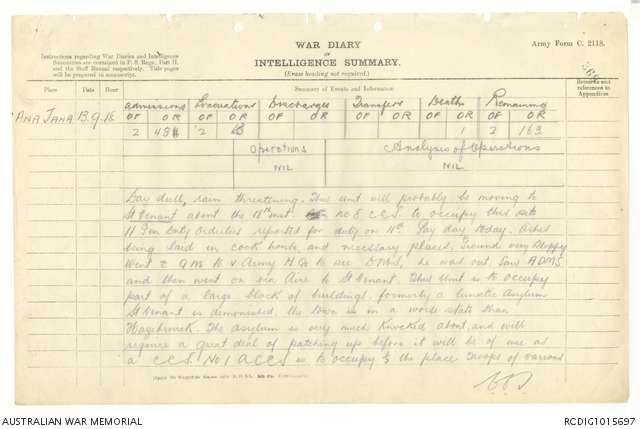 WAR DIARY
or
INTELLIGENCE SUMMARY.
(Erase heading not required.)
Army Form C. 2118.
Instructions regarding War Diaries and Intelligence
Summaries are contained in F. S. Regs., Part II.
and the Staff Manual respectively. Title pages
will be prepared in manuscript.
Place Date Hour Summary of Events and Information Remarks and
references to
Appendices
Admissions Evacuations Discharges Transfers Deaths Remaining
OF OR OF OR OF OR OF OR OF OR OF OR
2 2 1 2 163
Operations Analysis of Operations
NIL NIL
Day dull, rain threatening. This unit will probably be moving to
St Venant about the inst. No 8 C.C.S. to occupy this site
11 Gen Duty Orderlies reported for duty on Pay day today. Ashes
being laid in cook house, and necessary places, ground very sloppy
Went to & Army H Q to see DMS, he was out, Saw ADMS
and then went on via Aire to St Venant. This Unit is to occupy
part of a large block of buildings, formerly a lunatic Asylum
St Venant is demolished the town is in a worse state than
Hazebrouck. The asylum is very much knocked about, and will
require a great deal of patching up before it will be of use as
a C.C.S. No 1 ACCS is to occupy the place Troops of various
AUSTRALIAN WAR MEMORIAL
RCDIG1015697